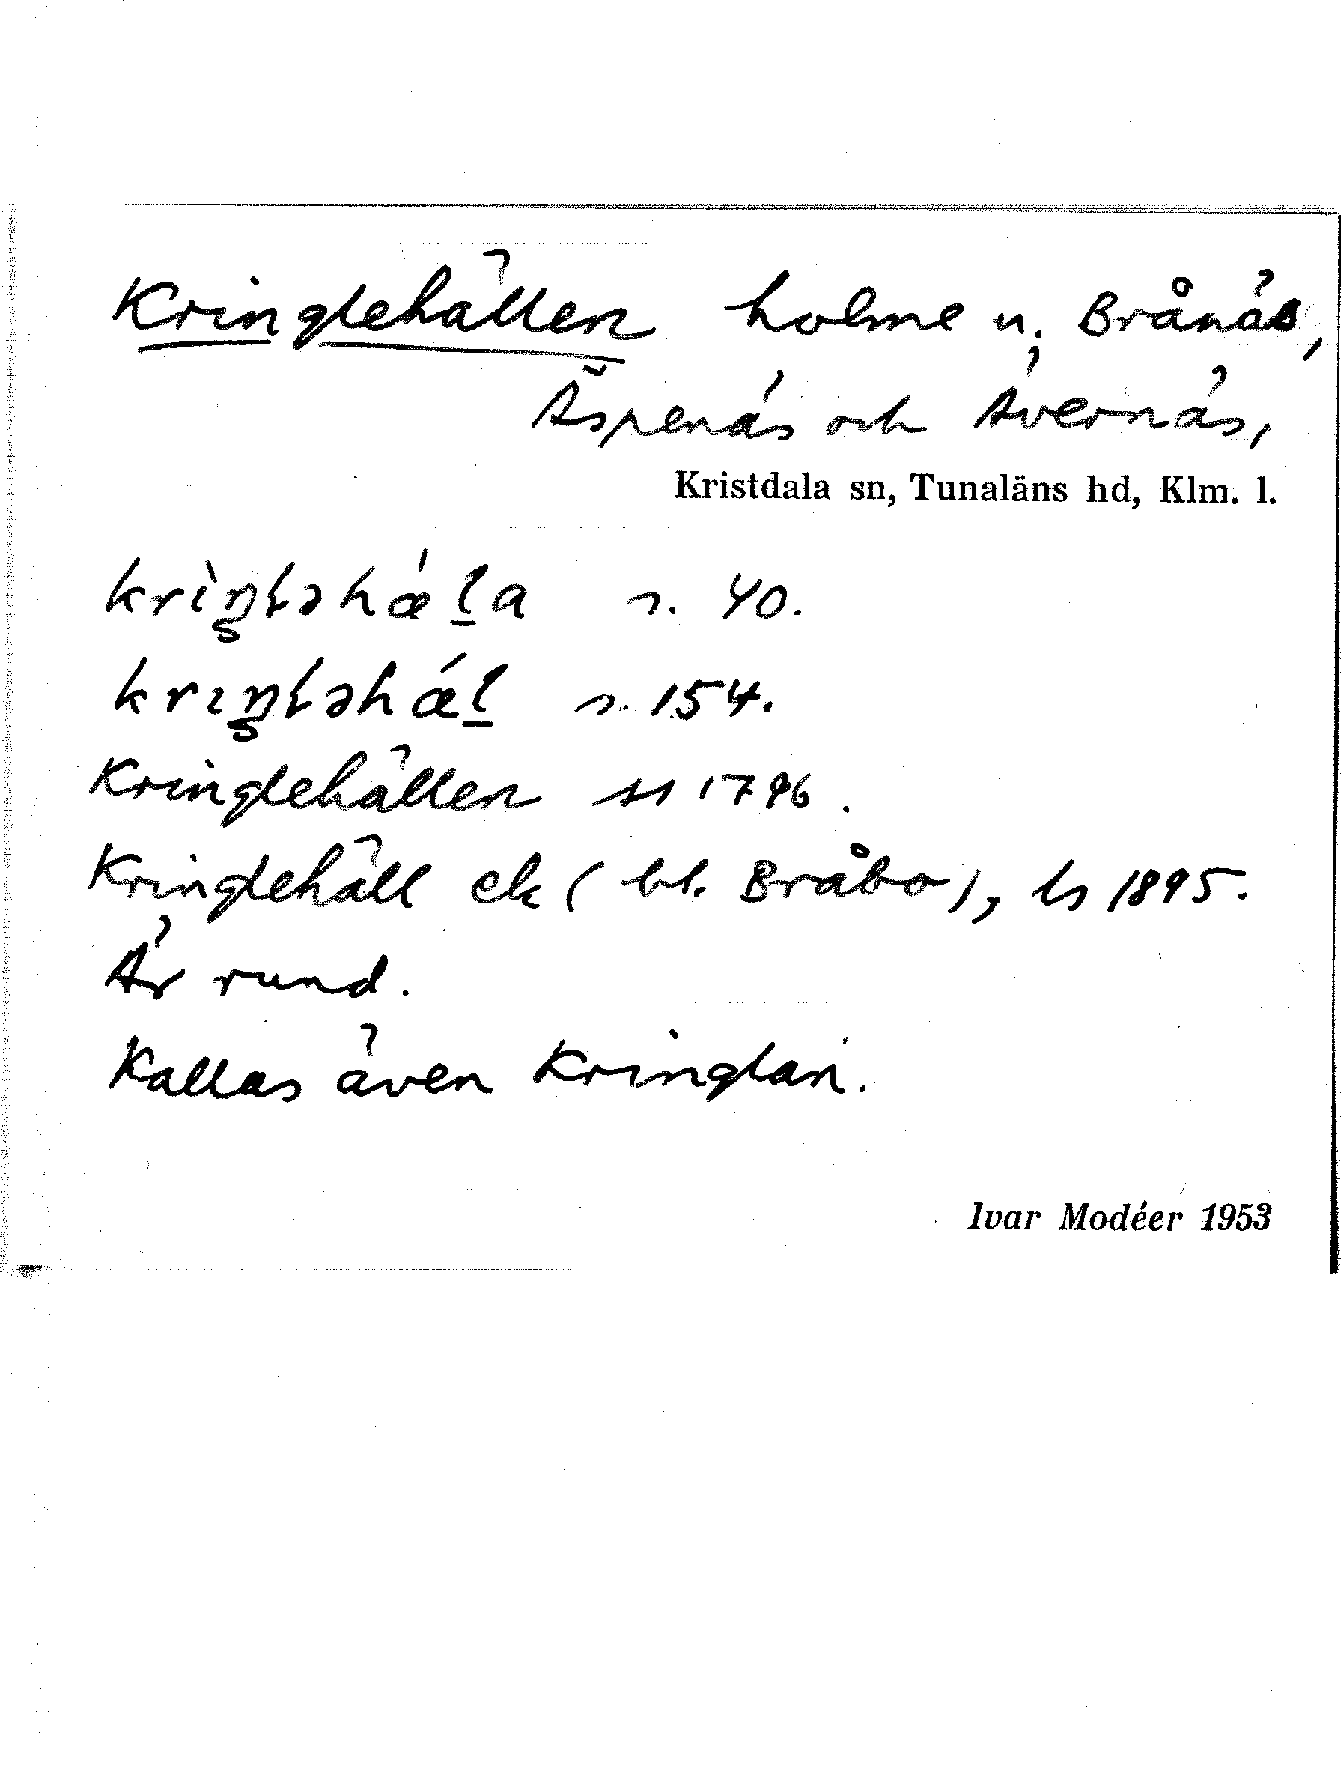 Kringlehällen holme u. Brånäs,
Äspenäs och Ävernäs,
Kristdala sn, Tunaläns hd, Klm. l.
s. 40.
s. 154.
Kringlehällen ss 1796.
Kringlehäll ek (bl. Bråbo), ls 1895.
Är rund.
Kallas även Kringlan.
Ivar Modéer 1953